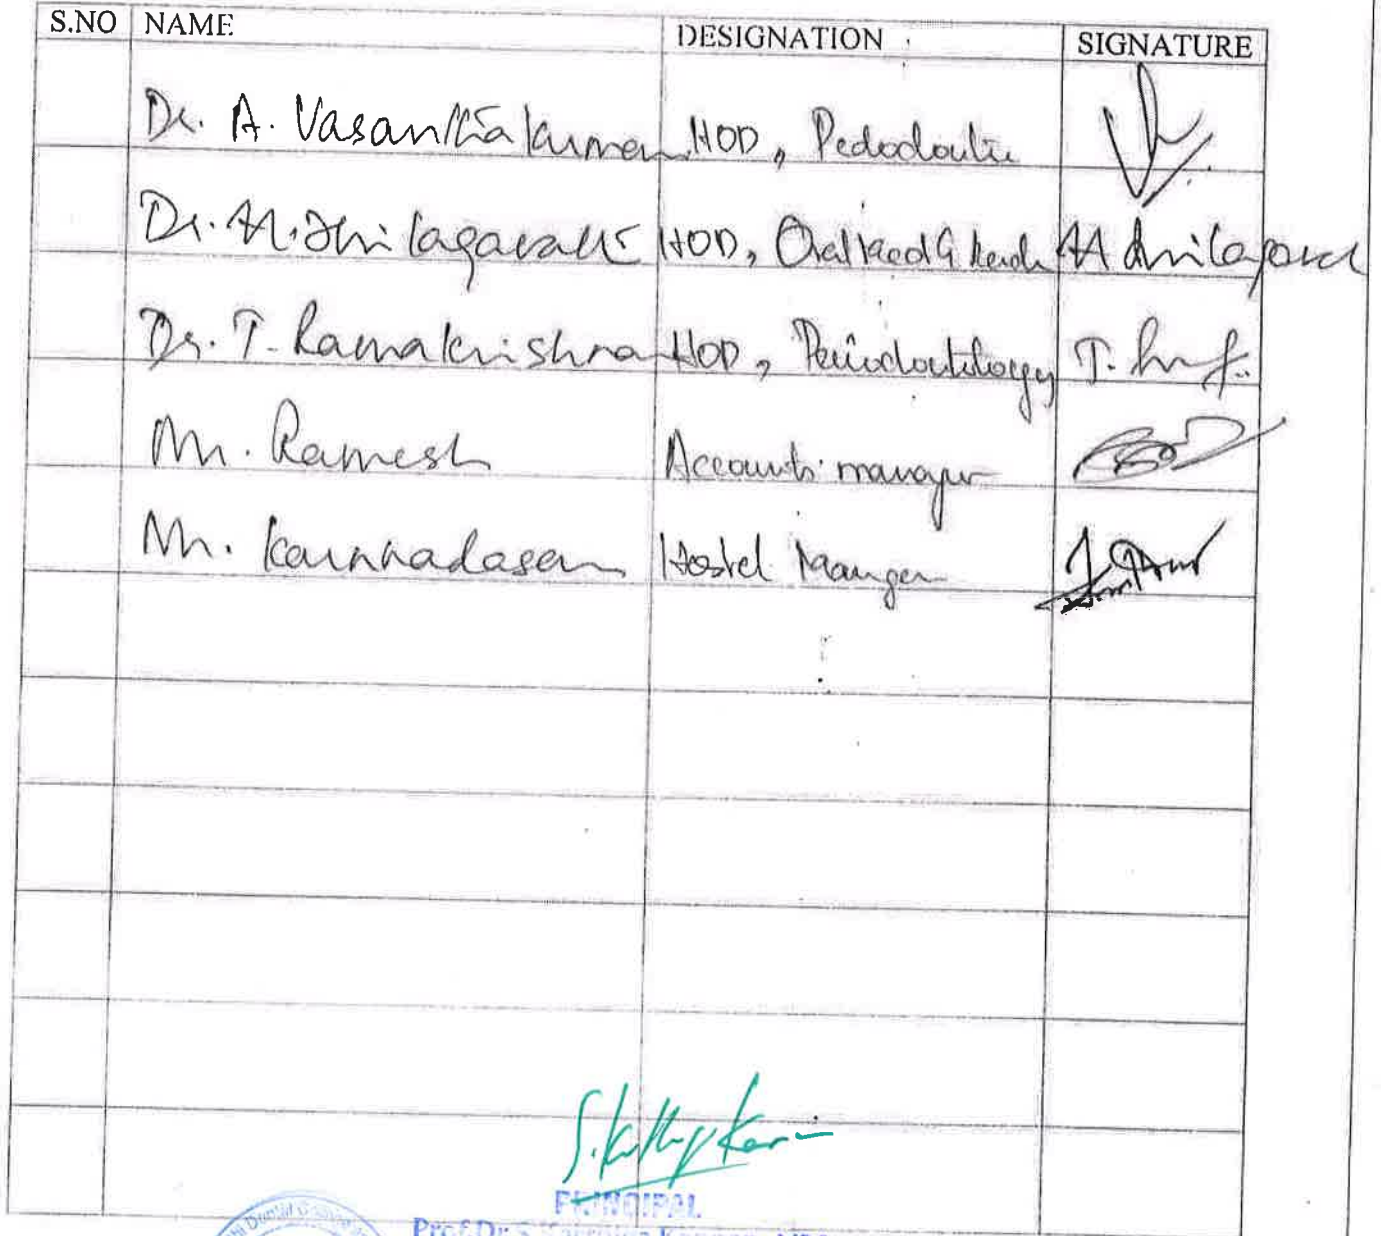 S.NO NAME DESIGNATION SIGNATURE
Dr. A. Vasanthakumar HOD, Pedodontic
Dr. M. Thilagavathi HOD, Oral
Dr. T. Ramakrishna HOD, Periodontology T.
Mr. Ramesh Accounts manager
Mr. Kannadasan Hostel Manager
PRINCIPAL
Prof.Dr.S
Dental College